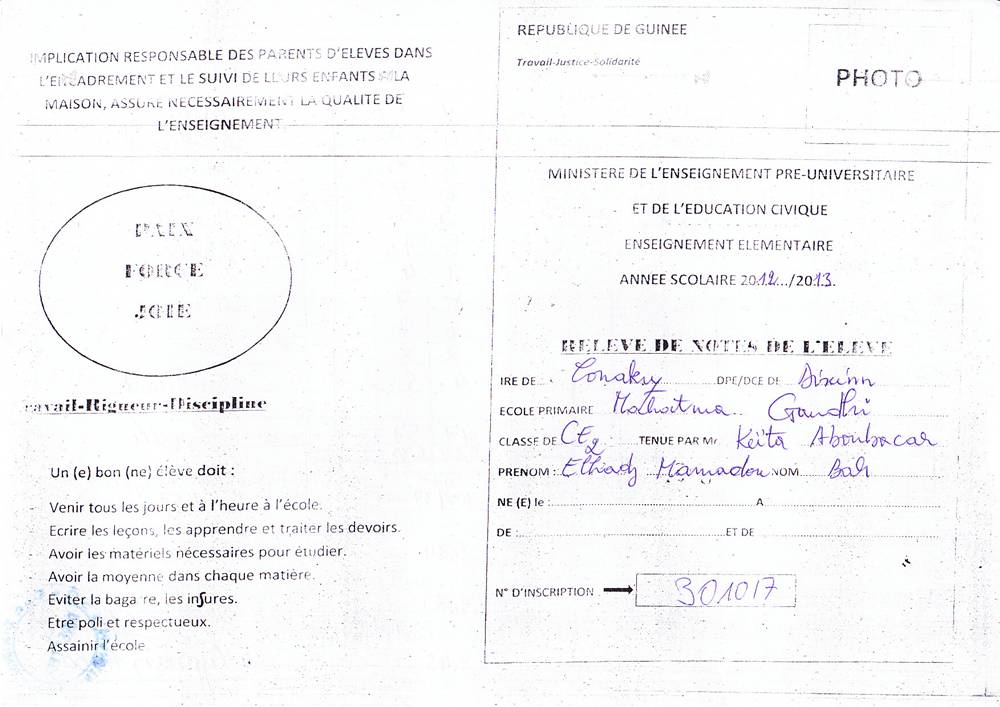 IMPLICATION RESPONSABLE DES PARENTS D'ELEVES DANS
L'ENCADREMENT ET LE SUIVI DE LEURS ENFANTS A LA
MAISON, ASSURE NECESSAIREMENT LA QUALITE DE
L'ENSEIGNEMENT
PAIX
FORCE
JOIE
Travail-Rigueur-Discipline
Un (e) bon (ne) élève doit :
- Venir tous les jours et à l'heure à l'école.
- Ecrire les leçons, les apprendre et traiter les devoirs.
- Avoir les matériels nécessaires pour étudier.
- Avoir la moyenne dans chaque matière.
- Eviter la bagarre, les injures.
- Etre poli et respectueux.
- Assainir l'école
REPUBLIQUE DE GUINEE
Travail-Justice-Solidarité
PHOTO
MINISTERE DE L'ENSEIGNEMENT PRE-UNIVERSITAIRE
ET DE L'EDUCATION CIVIQUE
ENSEIGNEMENT ELEMENTAIRE
ANNEE SCOLAIRE 2012.../2013.
RELEVE DE NOTES DE L'ELEVE
IRE DE Conakry DPE/DCE DE Dixinn
ECOLE PRIMAIRE Mahatma Gandhi
CLASSE DE CE2 TENUE PAR Mr Keïta Aboubacar
PRENOM : Elhadj Mamadou NOM Bah
NE (E) le : A
DE : ET DE
N° D'INSCRIPTION 301017